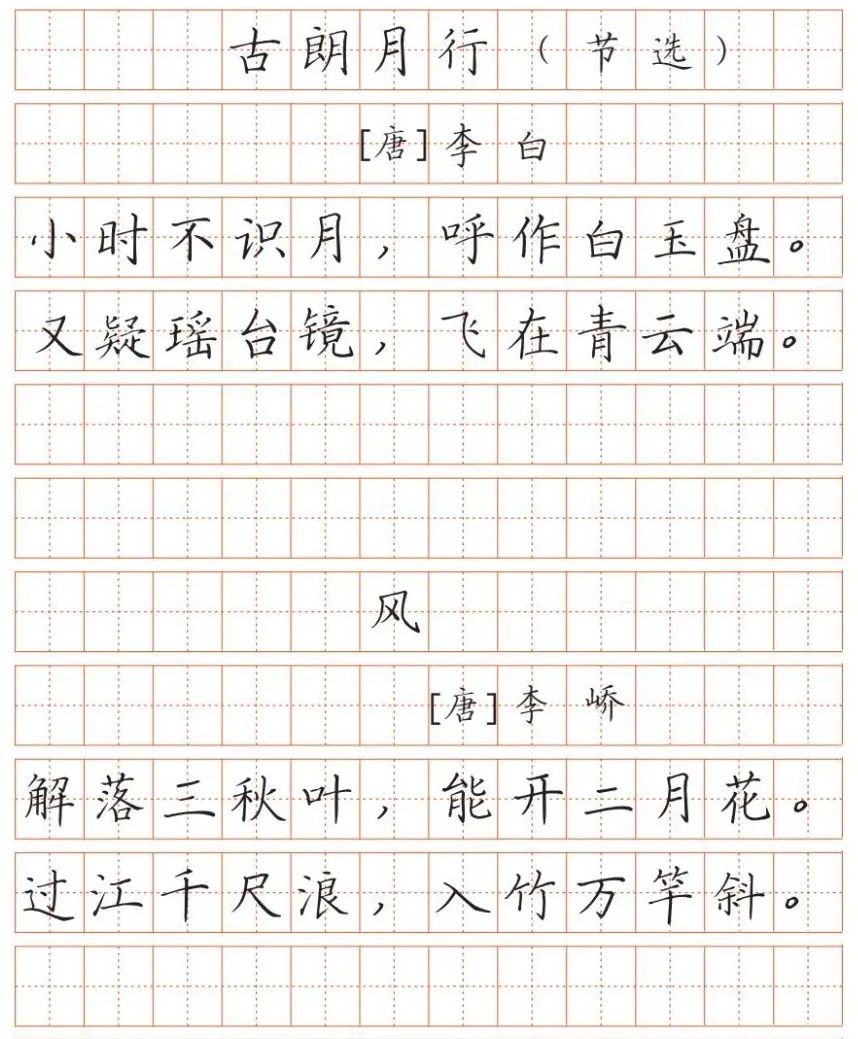 古朗月行（节选）
[唐]李白
小时不识月，呼作白玉盘。
又疑瑶台镜，飞在青云端。
风
[唐]李峤
解落三秋叶，能开二月花。
过江千尺浪，入竹万竿斜。